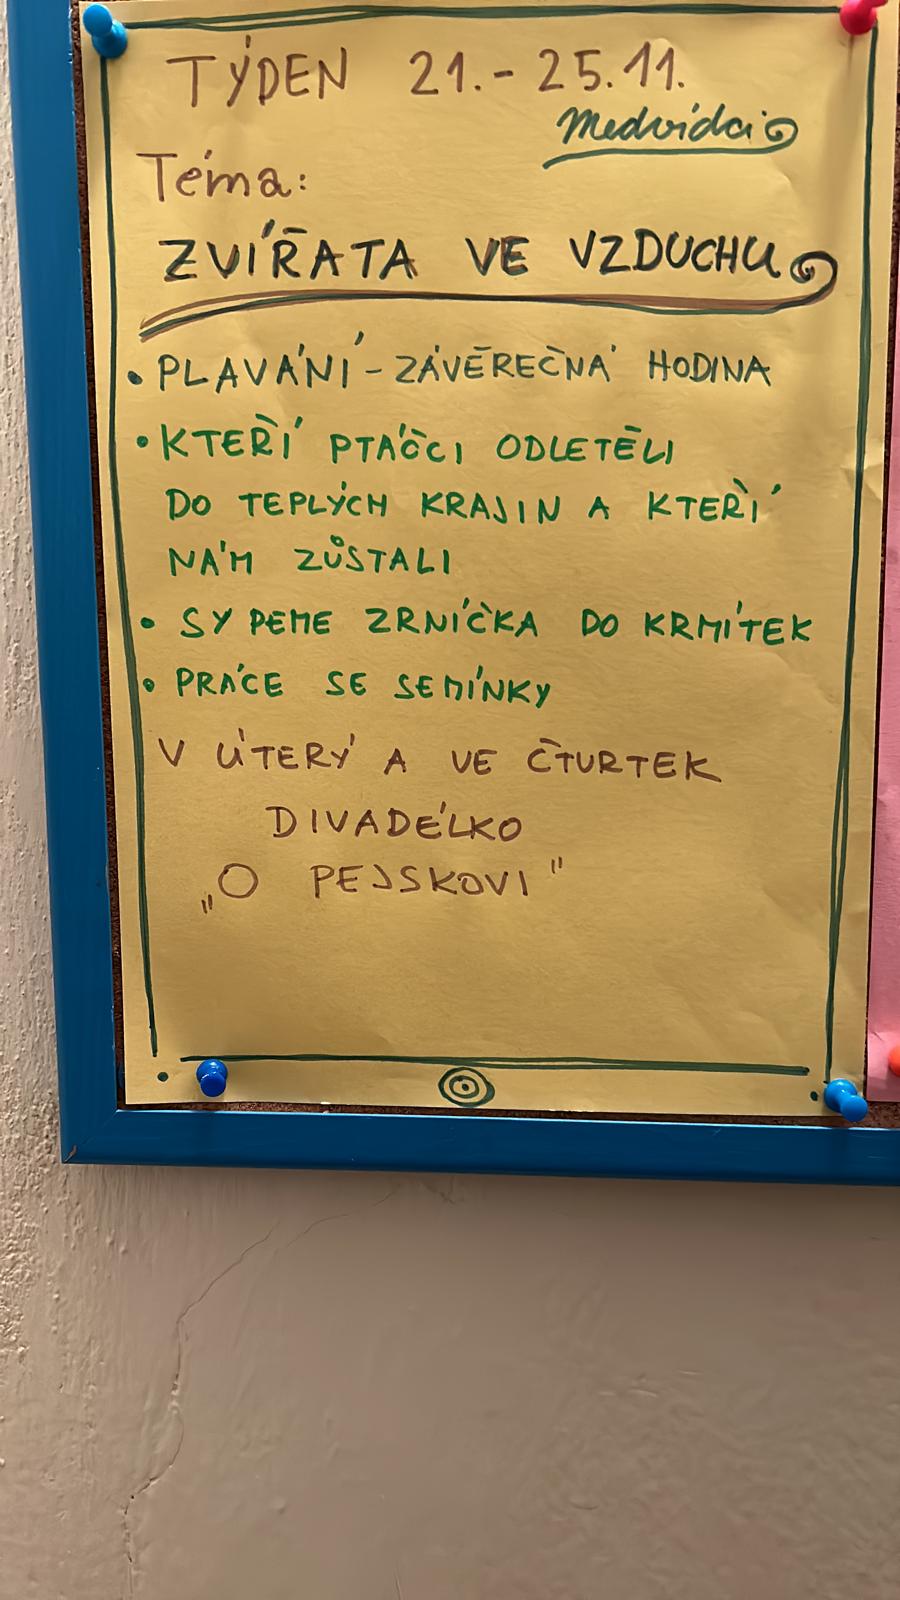 TÝDEN 21.-25.11.
Medvídci
Téma:
ZVÍŘATA VE VZDUCHU
• PLAVÁNÍ - ZÁVĚREČNÁ HODINA
• KTEŘÍ PTÁČCI ODLETĚLI
DO TEPLÝCH KRAJIN A KTEŘÍ
NÁM ZŮSTALI
• SYPEME ZRNÍČKA DO KRMÍTEK
• PRÁCE SE SEMÍNKY
V ÚTERÝ A VE ČTVRTEK
DIVADÉLKO
„O PEJSKOVI"